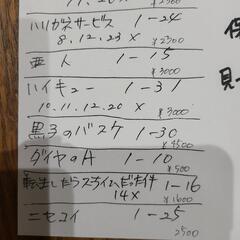 11.20×
¥2500
ハリガネサービス 1-24
8.12.23× ¥2500
亜人 1-15
¥3000
ハイキュー 1-31
10.11.12.20× ¥3000
黒子のバスケ 1-30
¥3500
ダイヤのA 1-10
¥500
転生したらスライムだった件 1-16
14× ¥1600
ニセコイ 1-25
2500
保
見